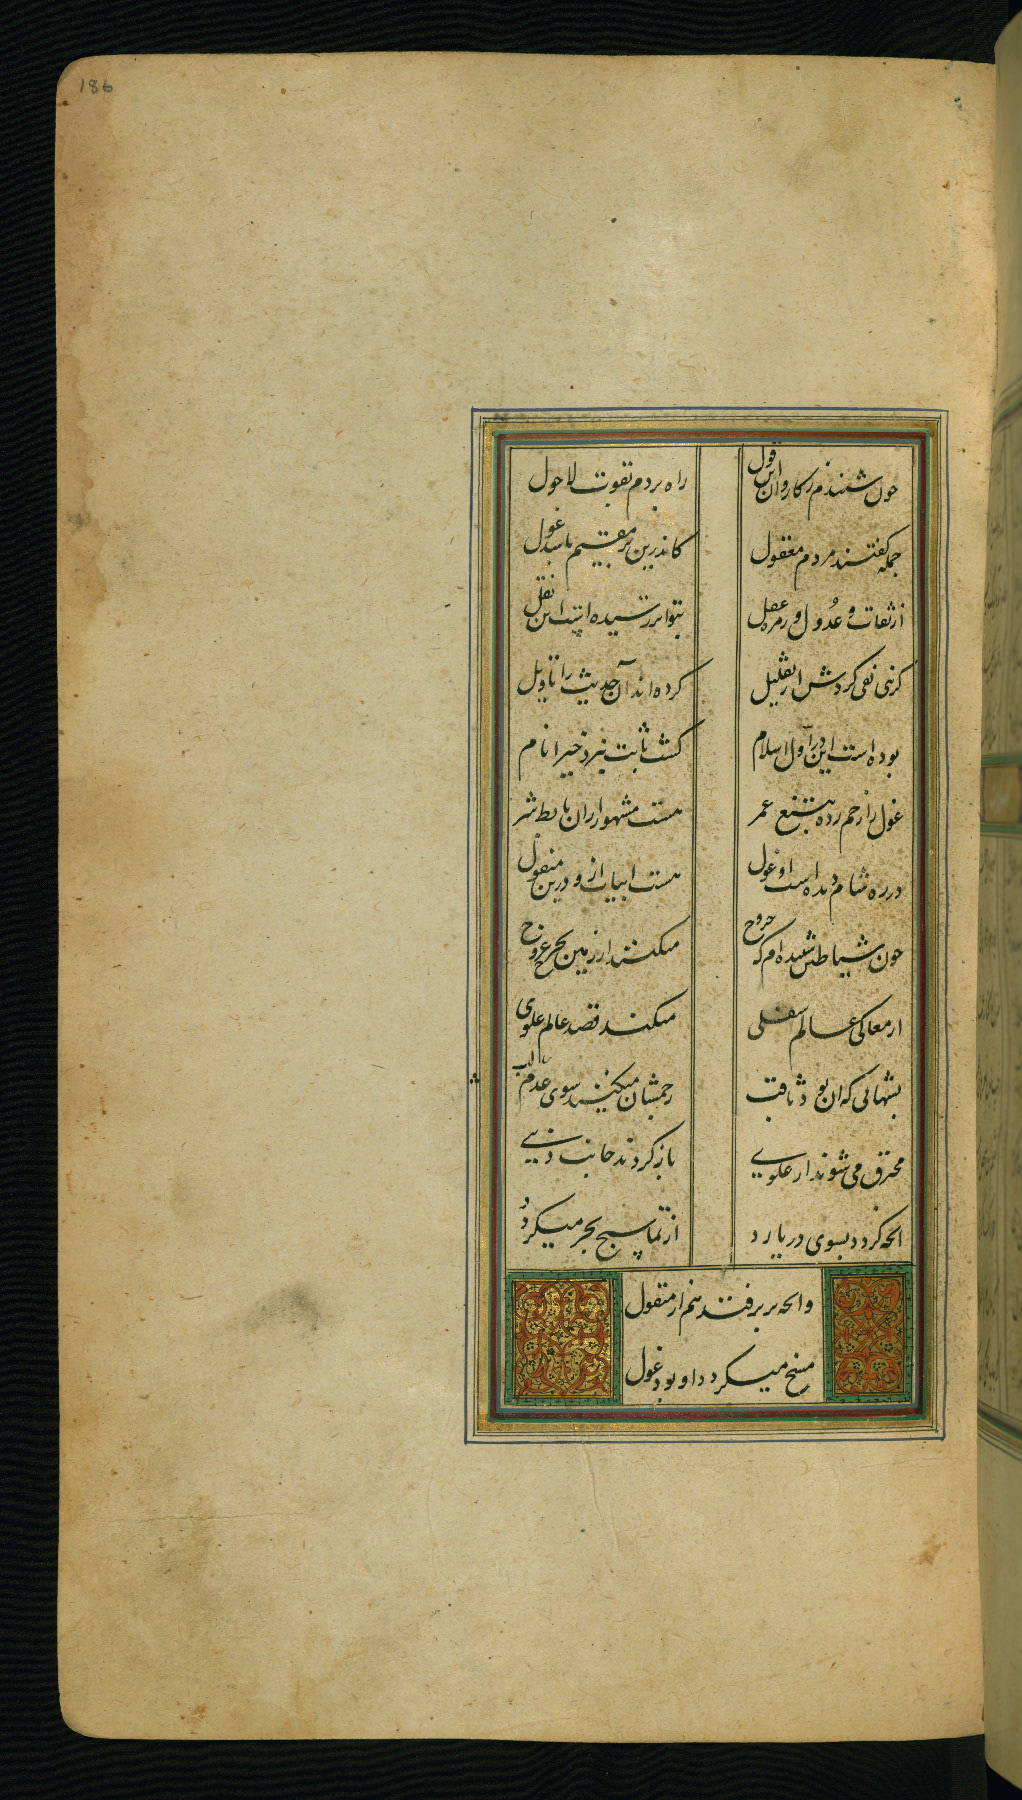 186
چون شنیدم ز کاروان این قول
راه بردم بقوت لا حول
جمله گفتند مردم معقول
کاندرین بر مقیم باشد غول
از ثقات و عدول و زمره عقل
بتواتر رسیده است این نقل
گر نبی نفی کردش از تقلیل
کرده اند آن حدیث را تاویل
بوده است این در اول اسلام
گشت ثابت نبرد خیر انام
غول را زخم زده بتیغ عمر
هست مشهور از ان تابط شر
در ره شام دیده است او غول
هست ابیات از و درین منقول
چون شیاطین شنیده ام که خروج
میکنند از زمین بخرج عروج
از معاکی عالم سفلی
میکنند قصد عالم علوی
بشهابی که ان بود ثاقب
رجمشان میکنند سوی
محترق می شوند از علوی
باز گردند جانب دنیی
انچه گردد بسوی دریا رد
از تماسیح بحر میگردد
وانچه بر بر فتد هم از منقول
مسخ میگردد او بود غول